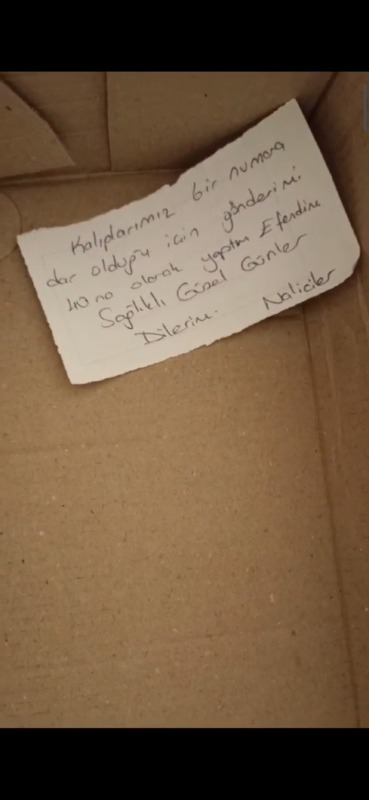 Kalıplarımız bir numara
dar olduğu için gönderimi
40 no olarak yaptım Efendim
Sağlıklı Güzel Günler
Dilerim. Naliciler